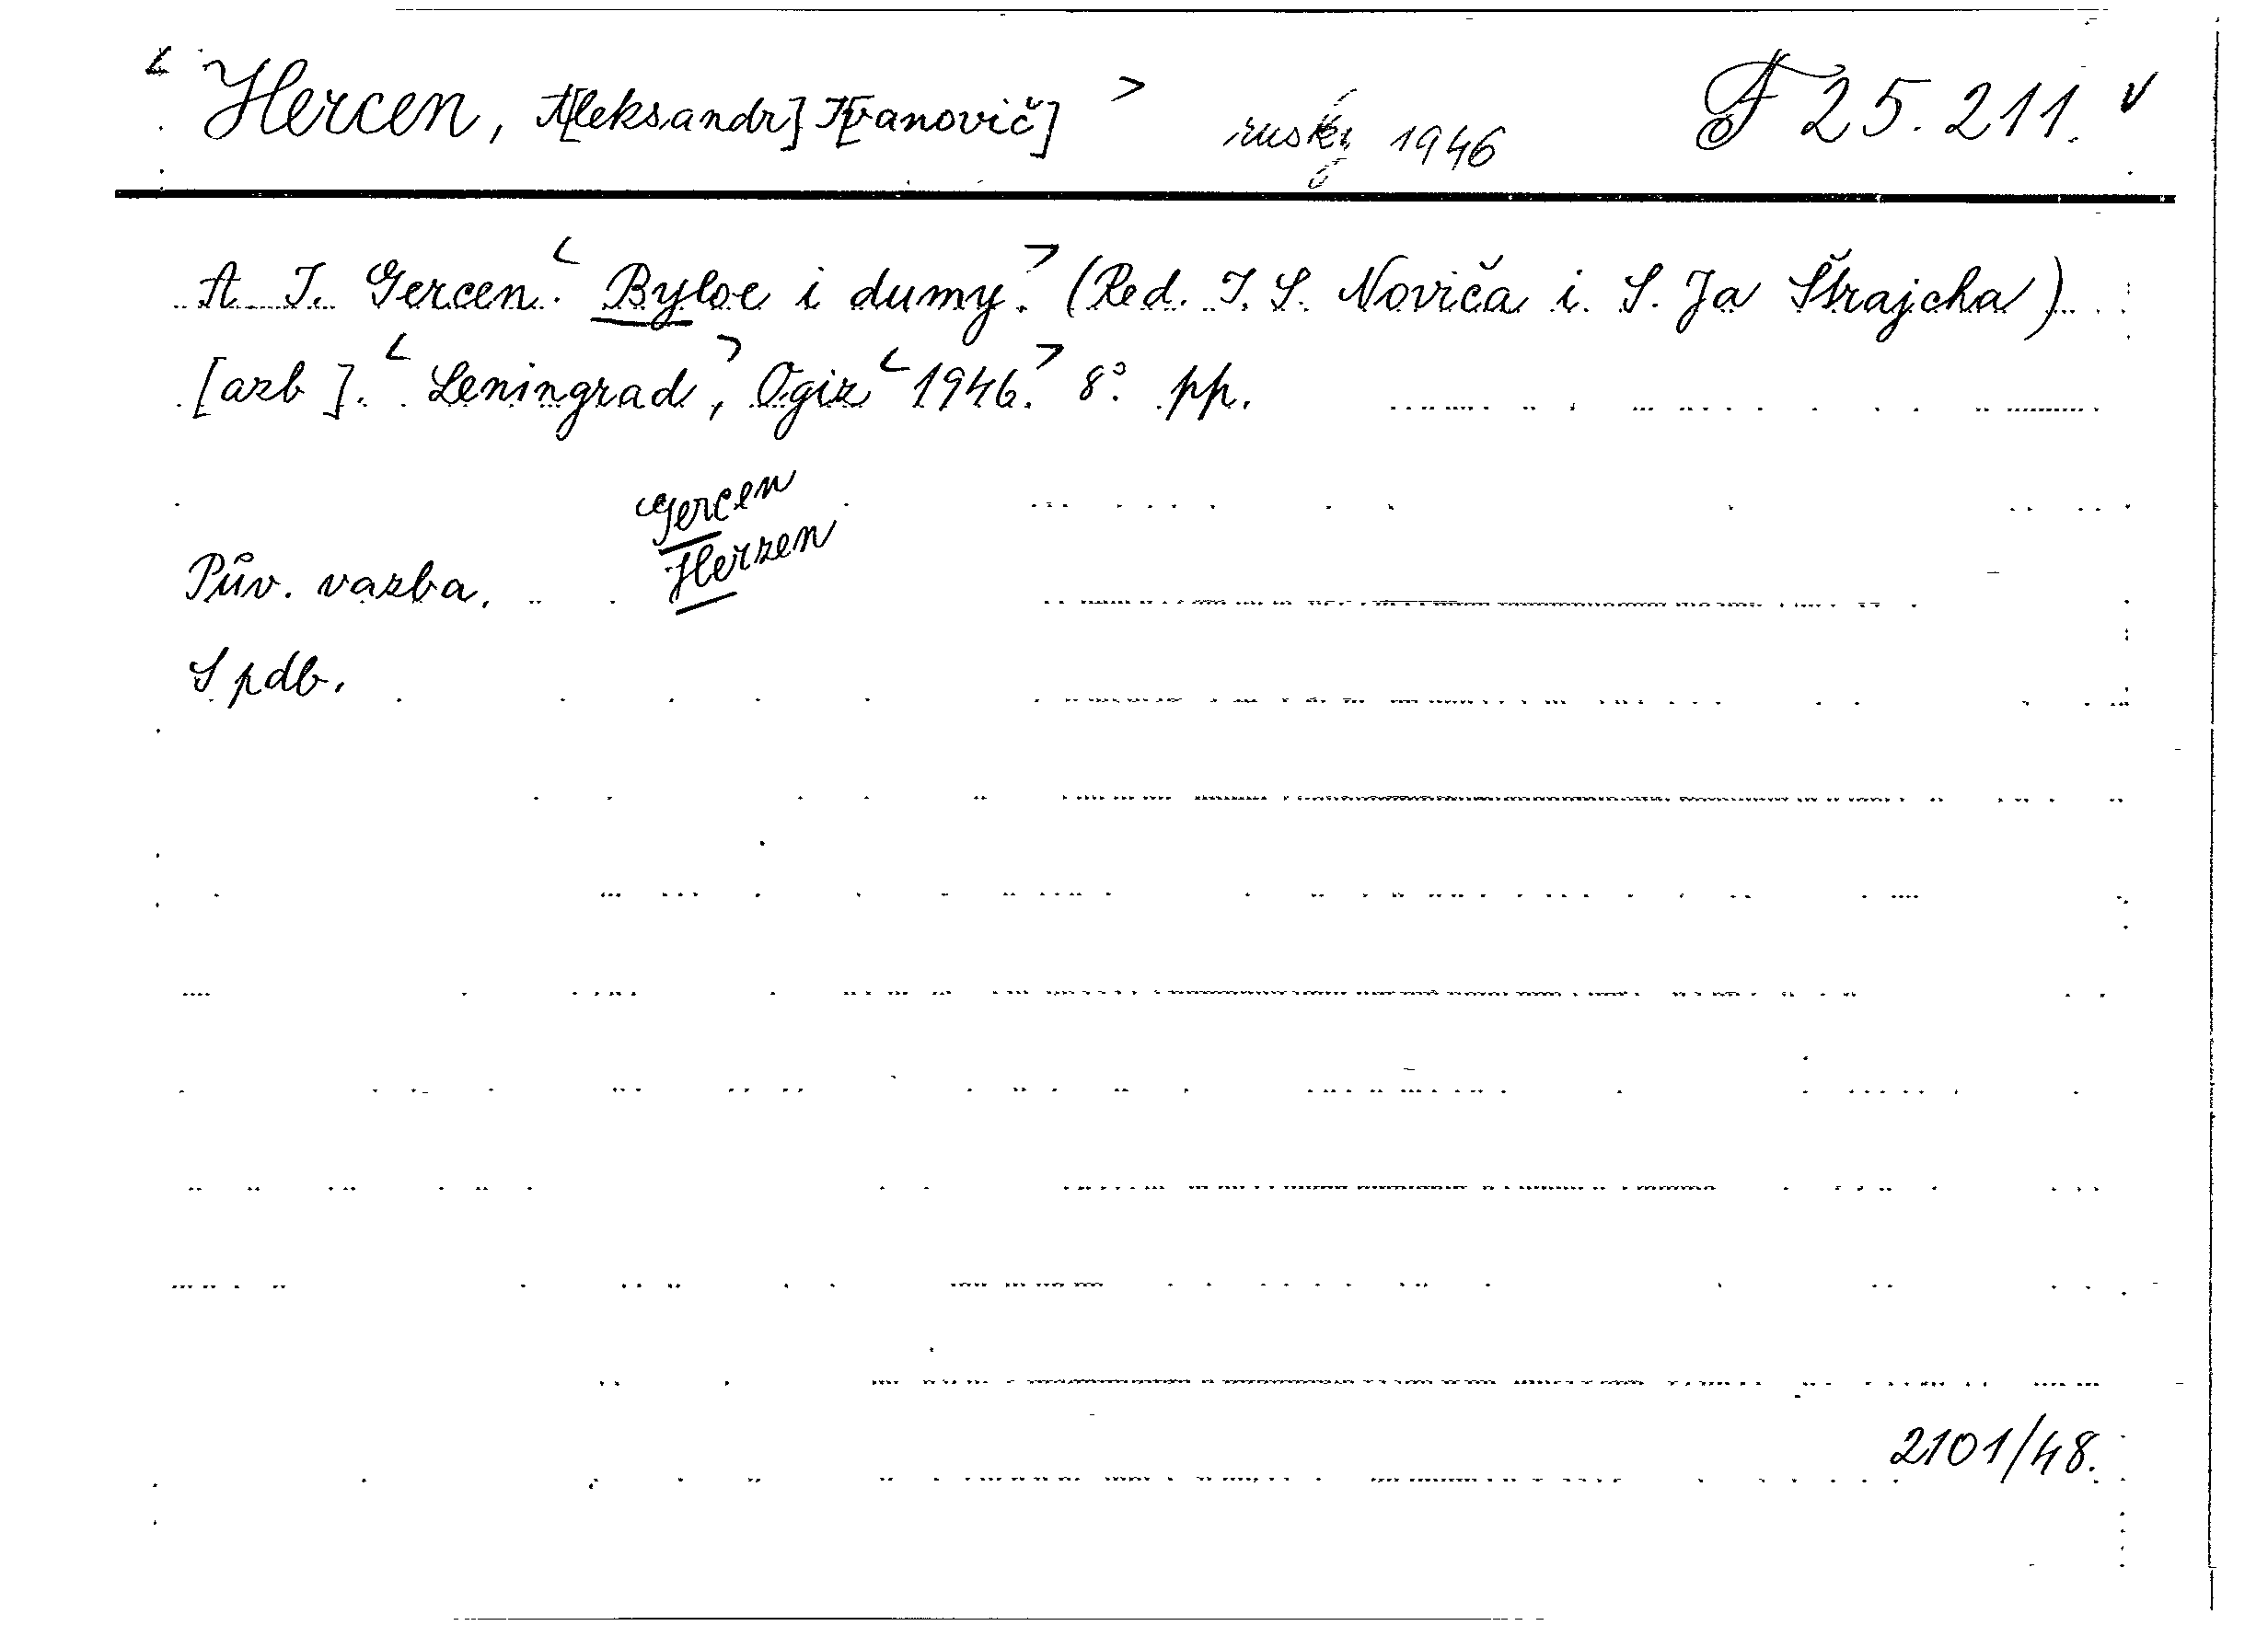 < Hercen, A[leksandr] I[vanovič] > rusky 1946 F 25.211. v
A. I. Gercen. < Byloe i dumy. > (Red. I. S. Noviča i. S. Ja Štrajcha)
[azb]. < Leningrad, > Ogiz < 1946. > 8°. pp.
Gercen
Herzen
Pův. vazba.
S pdb.
2101/48.